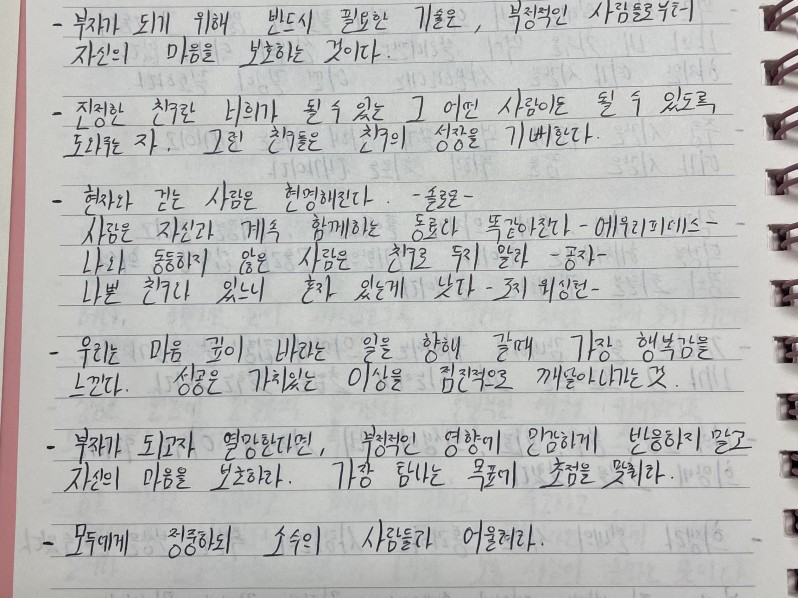 - 부자가 되기 위해 반드시 필요한 기술은, 부정적인 사람들로부터
자신의 마음을 보호하는 것이다.
- 진정한 친구란 너희가 될 수 있는 그 어떤 사람이든 될 수 있도록,
도와주는 자. 그런 친구들은 친구의 성장을 기뻐한다.
- 현자와 걷는 사람은 현명해진다. -솔로몬-
사람은 자신과 계속 함께하는 동료와 똑같아진다 - 에우리피데스 -
나와 동등하지 않은 사람은 친구로 두지 말라 -공자-
나쁜 친구나 있느니 혼자 있는게 낫다 - 조지 워싱턴 -
- 우리는 마음 깊이 바라는 일을 향해 갈때 가장 행복감을
느낀다. 성공은 가치있는 이상을 점진적으로 깨달아나가는 것.
- 부자가 되고자 열망한다면, 부정적인 영향에 민감하게 반응하지 말고
자신의 마음을 보호하라. 가장 탐나는 목표에 초점을 맞춰라.
- 모두에게 정중하되 소수의 사람들과 어울려라.